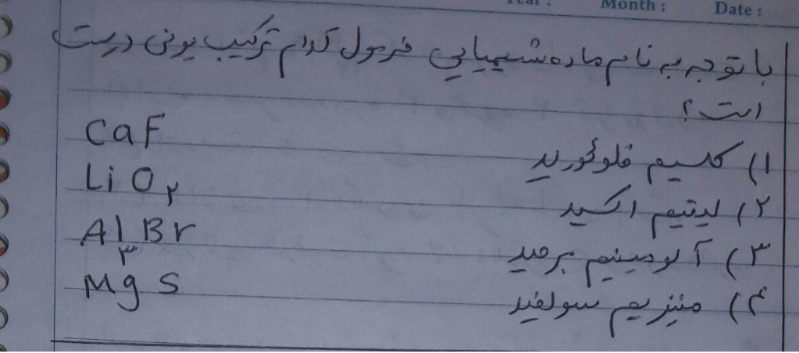 Year : Month : Date :
با توجه به نام ماده شیمیایی فرمول کدام ترکیب یونی درست
است؟
۱) کلسیم فلوئورید CaF
۲) لیتیم اکسید LiO۲
۳) آلومینیم برمید Al۳Br
۴) منیزیم سولفید MgS